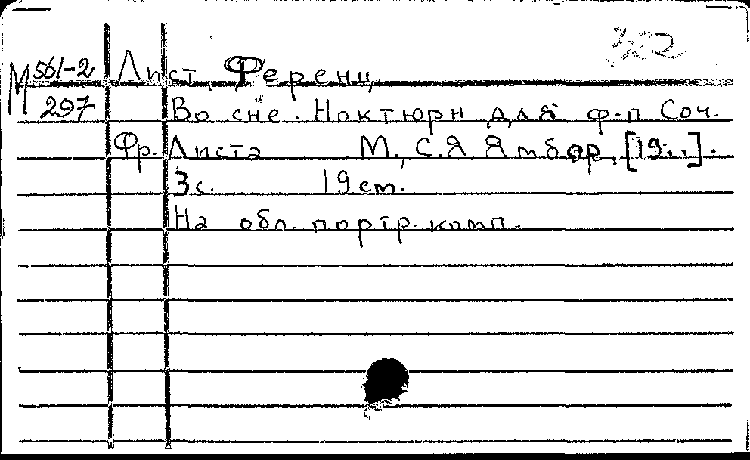 322
М 561-2 Лист, Ференц
297 Во сне. Ноктюрн для ф-п Соч.
Фр. Листа М., С.Я Ямбор, [19..].
3с. 19 cm.
На обл. портр. комп.